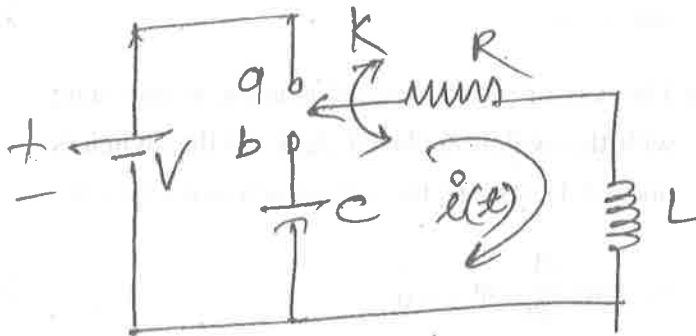 K
R
a
b
+
-
V
C
i(t)
L